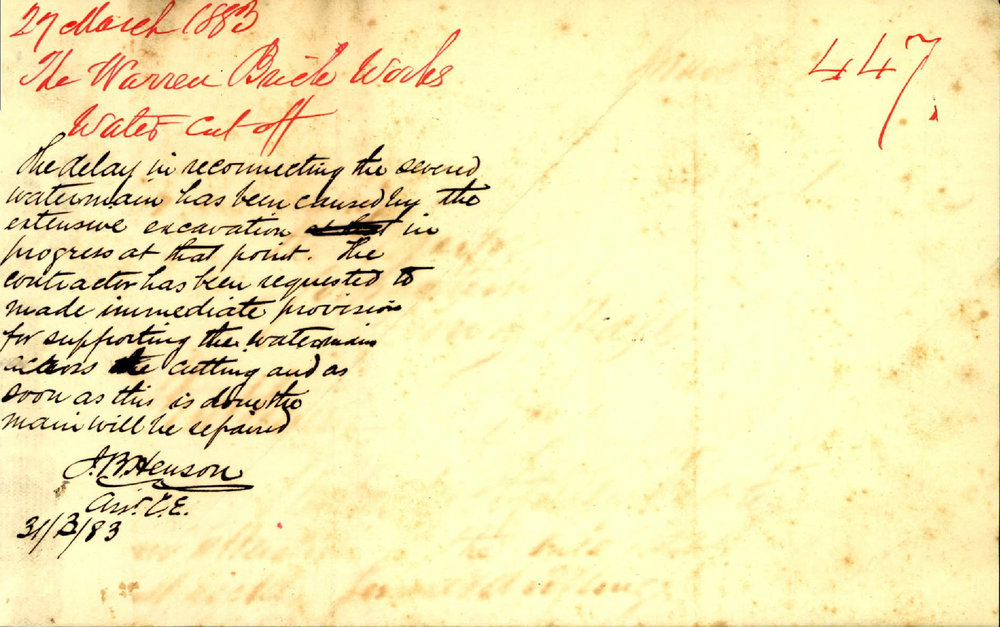 27 March 1883
447.
The Warren Brick Works
Water cut off
The delay in reconnecting the severed
watermain has been caused by the
extensive excavation in
progress at that point. The
contractor has been requested to
made immediate provision
for supporting the watermain
across the cutting and as
soon as this is done the
main will be repaired
J. B. Henson
Asst. C.E.
31/3/83